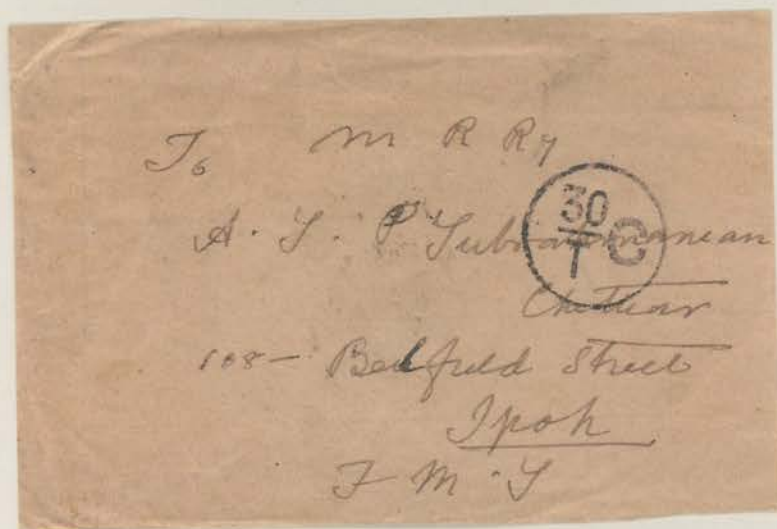 To M R Ry
30
T C
A. S. P Subramaniean
Chettiar
108- Belfield Street
Ipoh
F M. S